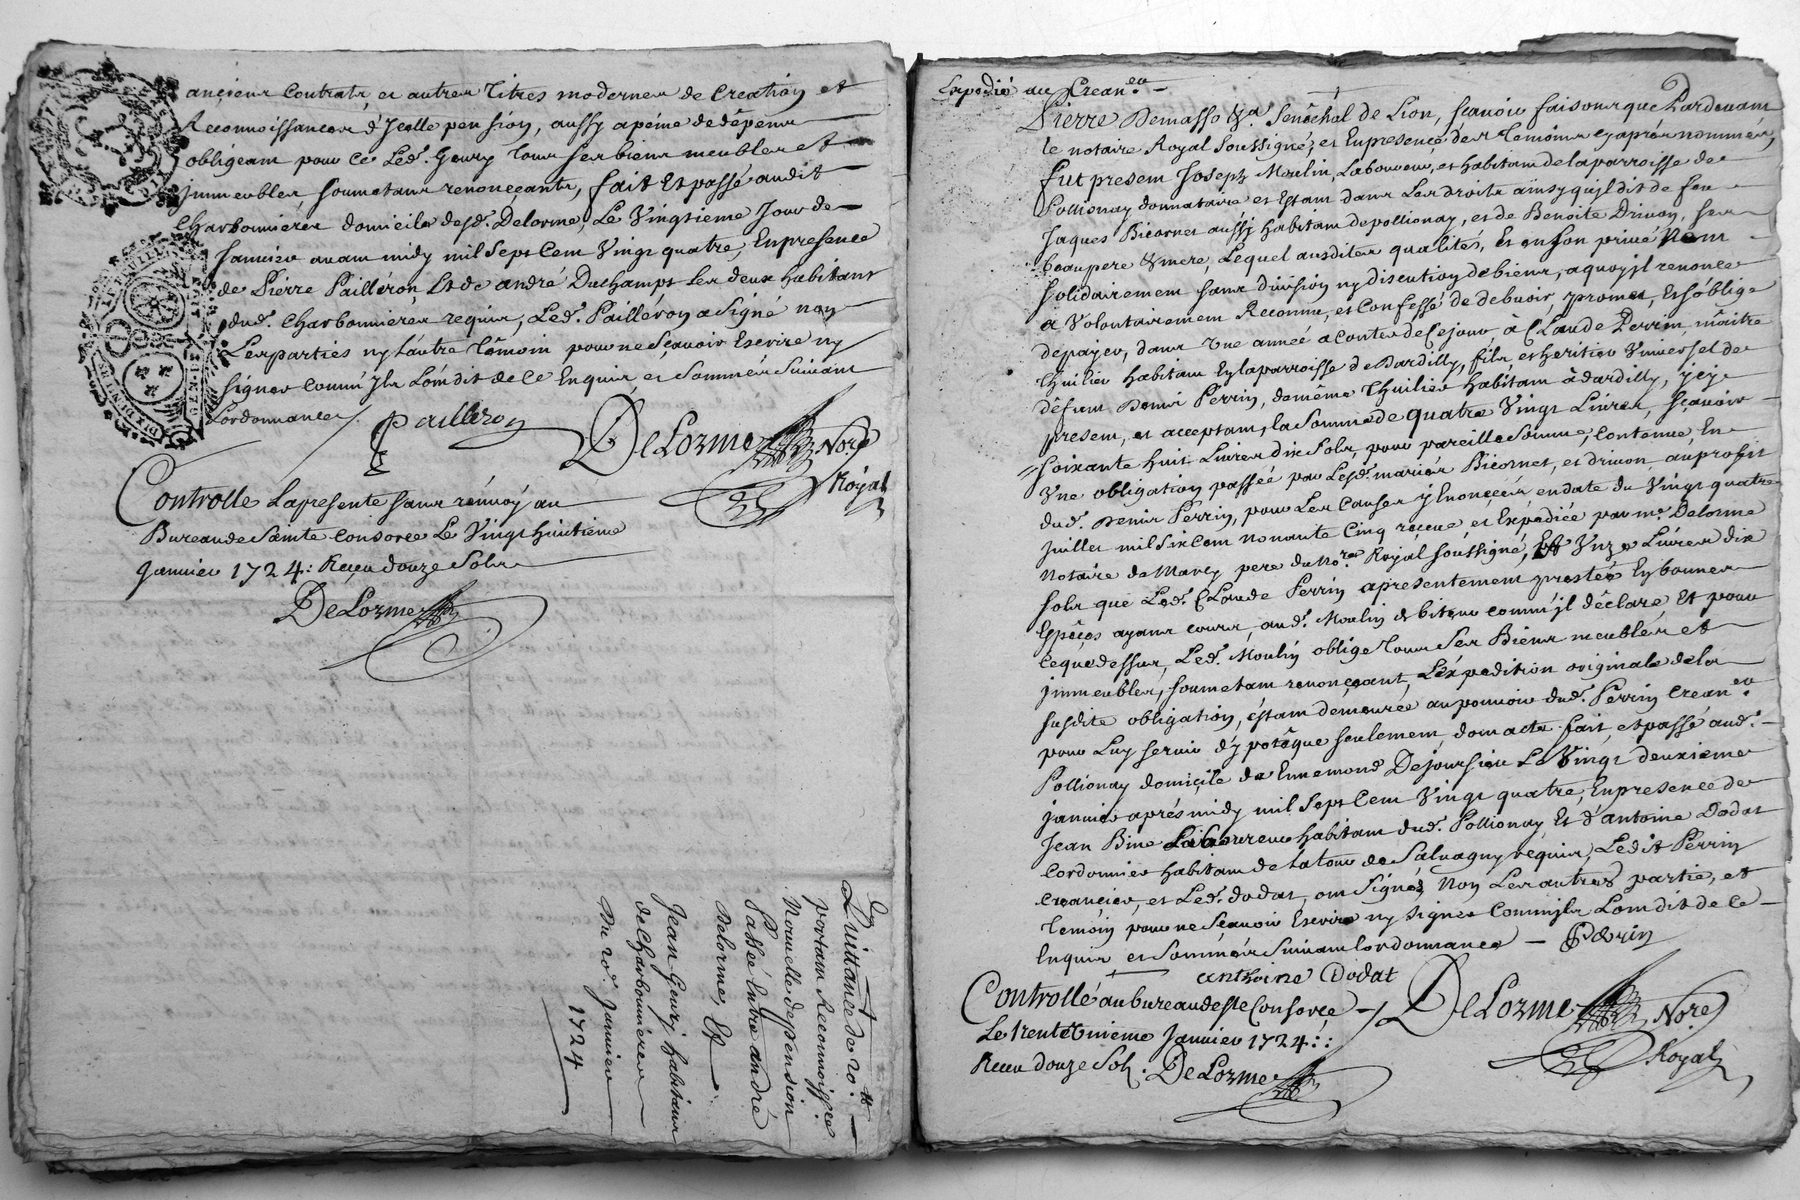 anciens Contrats et autres Titres modernes de Creation et
Reconnoissances d'Jcelle pension, aussy apeine de dêpens
obligeant pour Ce Led. Geury Tous ses biens meubles et
Jmmeubles soumetans renonceants, fait Et passé audit
Charbonnieres domicile desd. Delorme, Le Vingtieme Jour de
Janvier avant midy mil Sept Cent Vingt quatre, En presence
de Pierre Pailléron Et de andré Duchamps Les deux habitans
dud. Charbonnieres requis, Led. Pailléron a Signé non
Les parties ny L'autre Têmoin pour ne Sçavoir Escrire ny
signer Comm'Jls L'ont dit de Ce Enquis et Sommés Suivant
Lordonnance
Pailleron
DeLorme Nore.
Royal
Controlle Lapresente sans renvoy au
Bureau de Sainte Consorce Le Vingt huitieme
Janvier 1724: Receu douze Sols
DeLorme
Quittance de 20.
portant Reconnoissce.
Nouvelle de pension
Passée Entre andré
Delorme, Et
Jean Geury habitans
de Charbonnieres
Du 20e. Janvier
1724
Expedié au Crean.er
Pierre Demasso &a. Senêchal de Lion, sçavoir faisons que Pardevant
le notaire Royal Soussigné, et En presence des Temoins cy aprés nommés,
fut present Joseph Moulin, Laboureur, et habitant de la parroisse de
Pollionay donnataire et Estant dans Les droits ainsy qu'jl dit de feu
Jaques Bicornet aussj habitant de pollionay, et de Benoite Drivon, ses
beaupere & mere, Lequel ausdites qualités, Et en son privé Nom
solidairement sans division ny discution de biens, a quoy jl renonce
a Volontairement Reconnu, et Confessé de debvoir, promet, Et s'oblige
de payer, dans Une année a Conter de Ce jour, à Claude Perrin, mâitre
Thuilier habitant En la parroisse de Dardilly, fils et heritier Universel de
dêfunt Denis Perrin, de même Thuilier habitant à dardilly, jcy
present, et acceptant, la Somme de quatre Vingt Livres, Sçavoir
Soixante huit Livres dix Sols pour pareille Somme, Contenue, En
Une obligation passée par Lesd. mariés Bicornet, et drivon au profit
dud. Denis Perrin, pour Les Causes y Enoncées en date du Vingt quatre
Juillet mil Six Cent nonante Cinq receue et Expediée par me. Delorme
Notaire de Marcy pere du No.re Royal soussigné, Et Unze Livres dix
sols que Led. Claude Perrin a presentement prestés En bonnes
Espêces ayant cours, aud. Moulin debiteur comm'jl dêclare, Et pour
Ce que dessus, Led. Moulin oblige Tous Ses Biens meublés et
jmmeubles, soumetant renonceant, L'éxpedition originale dela
susdite obligation, êstant demeurée au pouvoir dud. Perrin Crean.er
pour Luy servir d'ypotêque seulement, dont acte fait, et passé aud.
Pollionay domicile de Ennemond Dejoursieu Le Vingt deuxieme
janvier aprés midy mil Sept Cent Vingt quatre, En presence de
Jean Bine Laboureur habitant dud. Pollionay, Et d'antoine Dodat
Cordonnier habitant de latour de Salvagny requis, Ledit Perrin
Creancier, et Led. dodat, ont Signés Non Les autres partie, et
Temoin pour ne Sçavoir Escrire ny Signer Comm'jls L'ont dit de Ce
Enquis et Sommés Suivant Lordonnance — Perrin
anthoine Dodat
Controllé au bureau de Ste Consorce
Le trente Unieme Janvier 1724::
Receu douze Sols. DeLorme
DeLorme Nore.
Royal